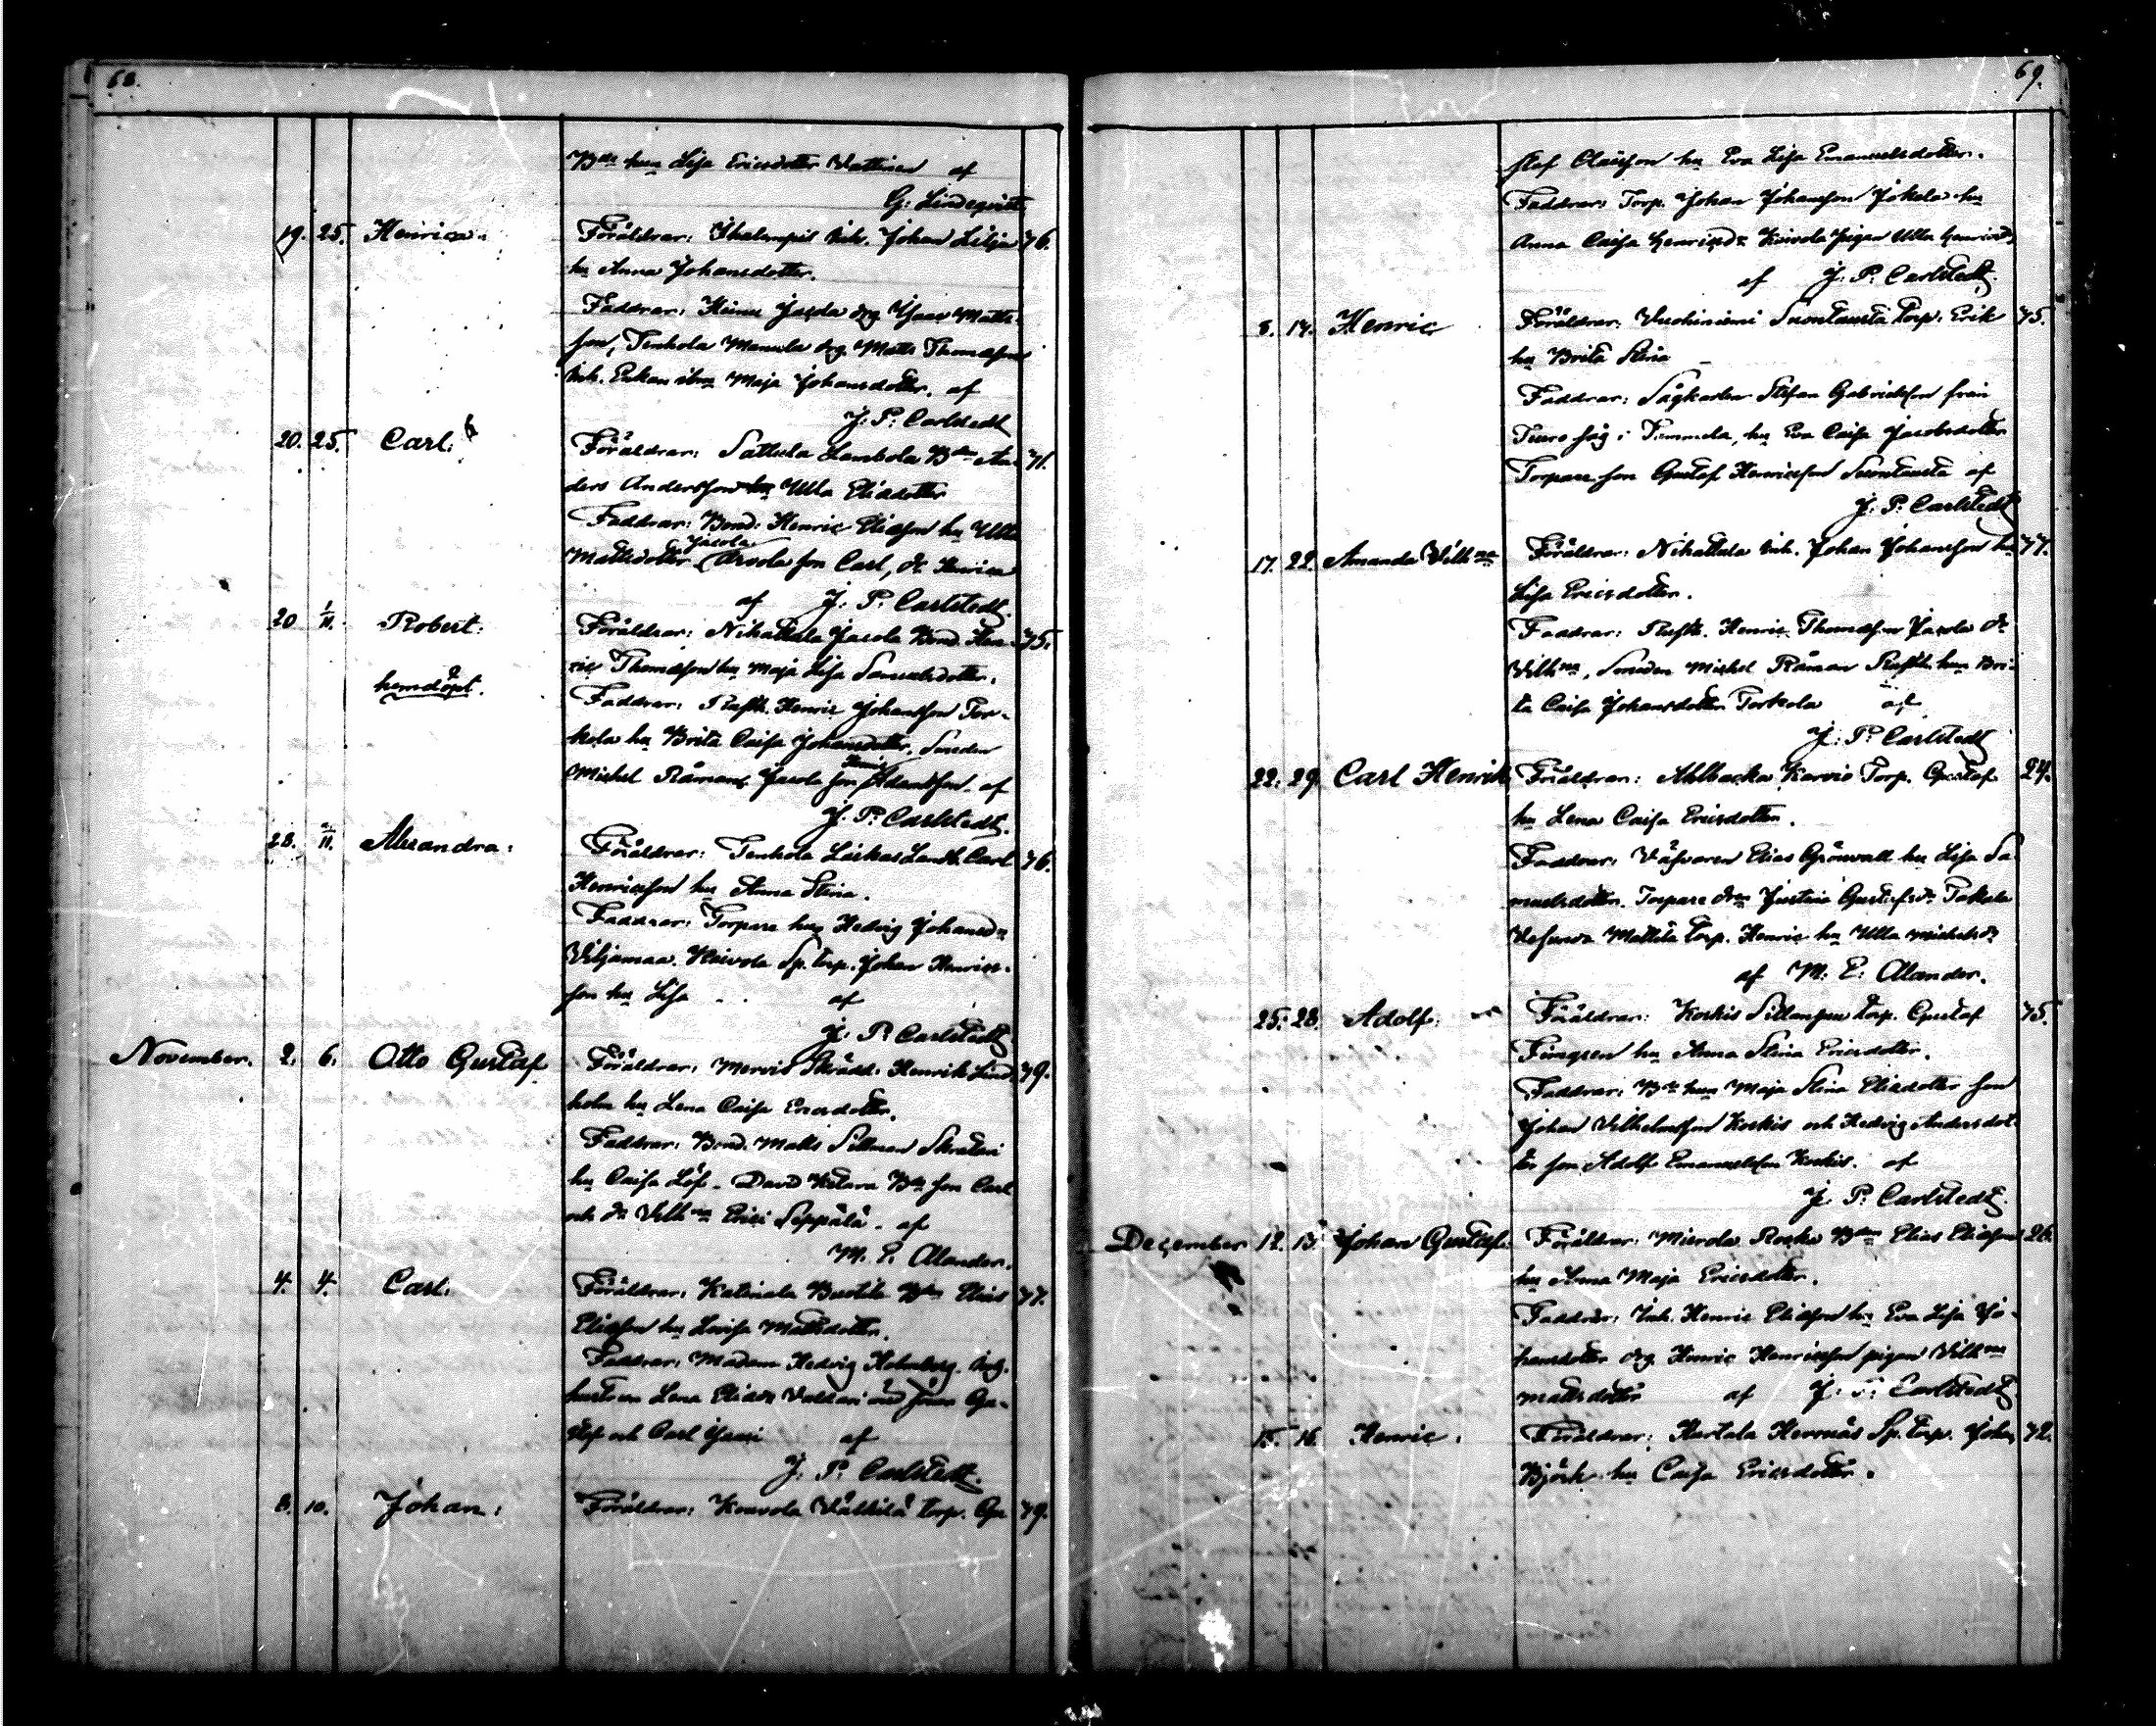 68.
Bds hu Lisa Ericsdotter Vattinen af
G: Lindeqvist
19. 25. Henrica. Föräldrar: Ihalempis Inh. Johan Lilja 76.
hu Anna Johansdotter.
Faddrar: Jacola drg. Isaac Matts-
son, Tenhola Mannla drg. Matts Thomasson
Inh. Enkan Maja Johansdotter. af
J: P: Carlstedt
20. 25. Carl: Föräldrar: Sattula Lambola Bdn An- 71.
ders Andersson hu Ulla Eliædotter
Faddrar: Bond: Henric Eliasson hu Ulla
Mattsdotter Jacola Arvola son Carl, dr Henrica
af J: P: Carlstedt.
20 1/11. Robert: Föräldrar: Nihattula Jacola Bond. Hen- 75.
ric Thomasson hu Maja Lisa Samuelsdotter.
hemdöpt. Faddrar: Rusth. Henric Johansson Tor-
kola hu Brita Caisa Johansdotter, Smeden
Michel Råman Jacola son Henric Adamsson. af
J: P: Carlstedt.
28. 2/11. Alexandra: Föräldrar: Tenhola Laikas Landb. Carl 76.
Henricsson hu Anna Stina.
Faddrar: Torpare hu Hedvig Johansdr
Viljamaa. Koivola Sp. torp. Johan Henrics-
son hu Lisa af
J: P: Carlstedt
November. 2. 6. Otto Gustaf Föräldrar: Mervis Skrädd: Henrik Lind- 79.
holm hu Lena Caisa Ericsdotter.
Faddrar: Bond. Matts Sillman
hu Caisa Löf. David Bds son Carl
och dr Vilhna Erici Seppälä. af
M. E. Alander.
4. 4. Carl: Föräldrar: Katinala Bustila Bdn Elias 77.
Eliasson hu Lovisa Mattsdotter.
Faddrar: Madam Hedvig Holmberg.
hustrun Lena Eliædr
och Carl af
J: P: Carlstedt.
8. 10. Johan: Föräldrar: Kouvola Välkilä torp. Gu 79.
69.
staf Claësson hu Eva Lisa Emanuelsdotter.
Faddrar: Torp. Johan Johansson Jokela hu
Anna Caisa Henricsdr Koivola pigan Ulla Henricsdr
af J: P: Carlstedt.
8. 14. Henric Föräldrar: Vuohiniemi Suontausta Torp. Erik 75.
hu Brita Stina
Faddrar: Sågkarlen Stefan Gabrielsson från
Turo såg i Tammela, hu Eva Caisa Jacobsdotter
Torpare son Gustaf Henricsson Suontausta af
J: P: Carlstedt
17. 22. Amanda Vilhna Föräldrar: Nihattula Inh. Johan Johansson hu 77.
Lisa Ericsdotter.
Faddrar: Rusth. Henric Thomasson Jacola dr
Vilhna, Smeden Michel Råman Rusth. hun Bri-
ta Caisa Johansdotter Torkola af
J: P: Carlstedt
22. 29. Carl Henrik Föräldrar: Ahlbacka Karvio Torp. Gustaf 24.
hu Lena Caisa Ericsdotter.
Faddrar: Väfvaren Elias Grönvall hu Lisa Sa-
muelsdotter. Torpare drn Justina Gustafsdr Pakala
Vesunda Mattila torp. Henric hu Ulla Michelsdr
af M: E: Alander.
25. 28. Adolf: Föräldrar: Koskis Sillanpää torp. Gustaf 75.
hu Anna Stina Ericsdotter.
Faddrar: Bds hun Maja Stina Eliædotter son
Johan Vilhelmsson Koskis och Hedvig Andersdot-
ter son Adolf Emanuelsson Koskis. af
J: P: Carlstedt.
December 12. 13. Johan Gustaf. Föräldrar: Mierola Bdn Elias Eliasson 26.
hu Anna Maja Ericsdotter.
Faddrar: Inh. Henric Eliasson hu Eva Lisa Jo-
hansdotter drg. Henric Henricsson pigan Vilhna
Mattsdotter af J: P: Carlstedt
15. 16. Henric. Föräldrar: Hurtala Herrnäs Sp. torp. Johan 72.
Björk hu Caisa Ericsdotter.